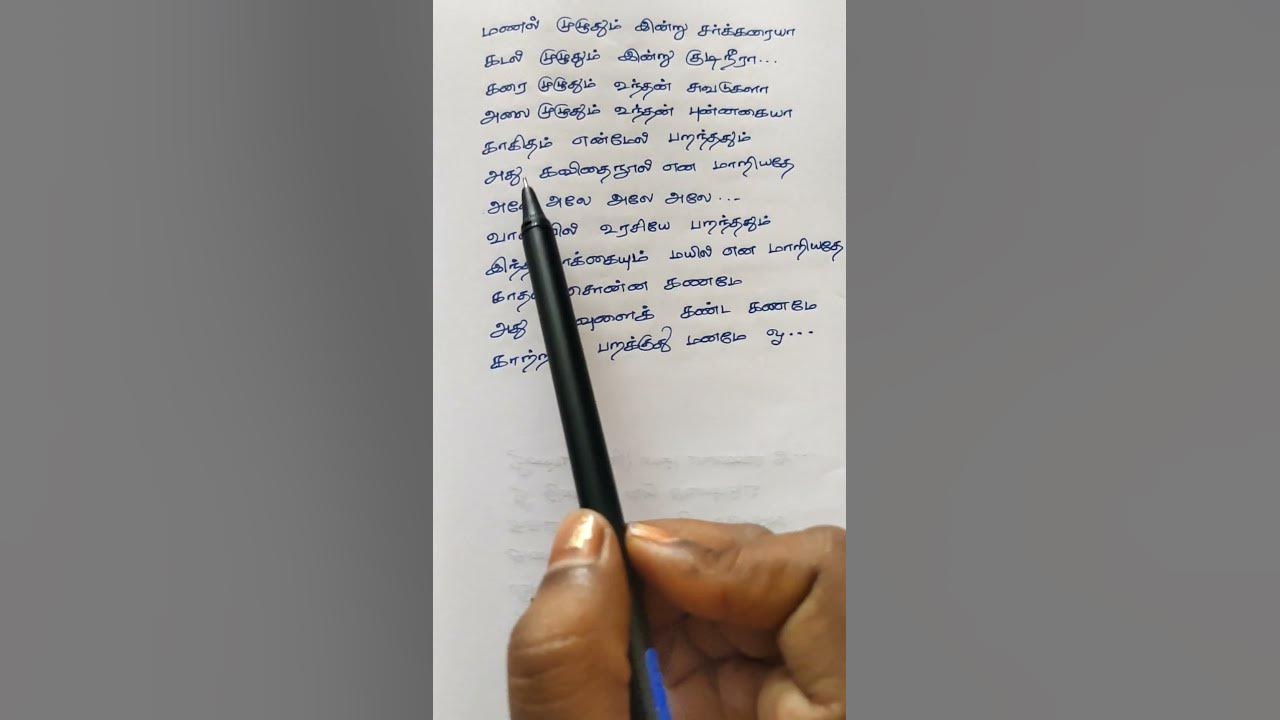 மணல் முழுதும் இன்று சர்க்கரையா
கடல் முழுதும் இன்று குடிநீரா...
கரை முழுதும் உந்தன் சுவடுகளா
அலை முழுதும் உந்தன் புன்னகையா
காகிதம் என்மேல் பறந்ததும்
அது கவிதைநூல் என மாறியதே
அலே அலே அலே அலே...
உரசியே பறந்ததும்
மயில் என மாறியதே
கணமே
அது கண்ட கணமே
பறக்குது மனமே ஓ...